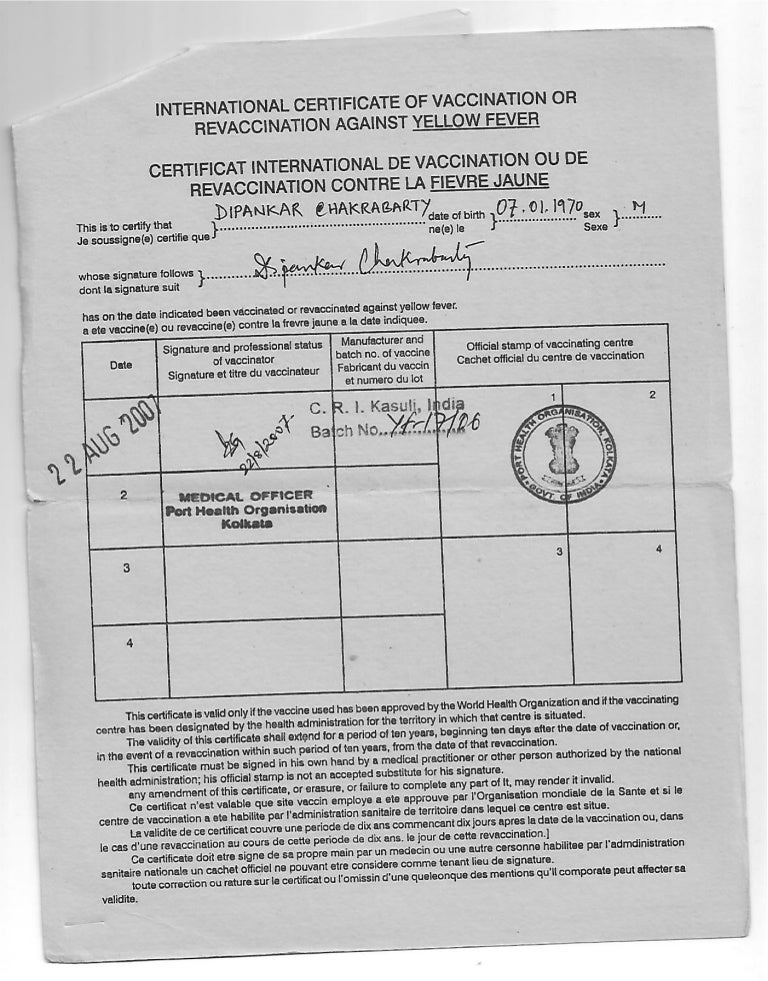 INTERNATIONAL CERTIFICATE OF VACCINATION OR
REVACCINATION AGAINST YELLOW FEVER
CERTIFICAT INTERNATIONAL DE VACCINATION OU DE
REVACCINATION CONTRE LA FIEVRE JAUNE
This is to certify that } DIPANKAR CHAKRABARTY date of birth } 07.01.1970 sex } M
Je soussigne(e) certifie que ne(e) le Sexe
whose signature follows } Dipankar Chakrabarty
dont la signature suit
has on the date indicated been vaccinated or revaccinated against yellow fever.
a ete vaccine(e) ou revaccine(e) contre la frevre jaune a la date indiquee.
Date
Signature and professional status
of vaccinator
Signature et titre du vaccinateur
Manufacturer and
batch no. of vaccine
Fabricant du vaccin
et numero du lot
Official stamp of vaccinating centre
Cachet official du centre de vaccination
22 AUG 2007
22/8/2007
C. R. I. Kasuli, India
Batch No.
1
2
PORT HEALTH ORGANISATION, KOLKATA
GOVT. OF INDIA
2
MEDICAL OFFICER
Port Health Organisation
Kolkata
3
3
4
4
This certificate is valid only if the vaccine used has been approved by the World Health Organization and if the vaccinating
centre has been designated by the health administration for the territory in which that centre is situated.
The validity of this certificate shall extend for a period of ten years, beginning ten days after the date of vaccination or,
in the event of a revaccination within such period of ten years, from the date of that revaccination.
This certificate must be signed in his own hand by a medical practitioner or other person authorized by the national
health administration; his official stamp is not an accepted substitute for his signature.
any amendment of this certificate, or erasure, or failure to complete any part of It, may render it invalid.
Ce certificat n'est valable que site vaccin employe a ete approuve par l'Organisation mondiale de la Sante et si le
centre de vaccination a ete habilite par l'administration sanitaire de territoire dans lequel ce centre est situe.
La validite de ce certificat couvre une periode de dix ans commencant dix jours apres la date de la vaccination ou, dans
le cas d'une revaccination au cours de cette periode de dix ans. le jour de cette revaccination.]
Ce certificate doit etre signe de sa propre main par un medecin ou une autre cersonne habilitee par l'admdinistration
sanitaire nationale un cachet officiel ne pouvant etre considere comme tenant lieu de signature.
toute correction ou rature sur le certificat ou l'omissin d'une queleonque des mentions qu'il comporate peut affecter sa
validite.